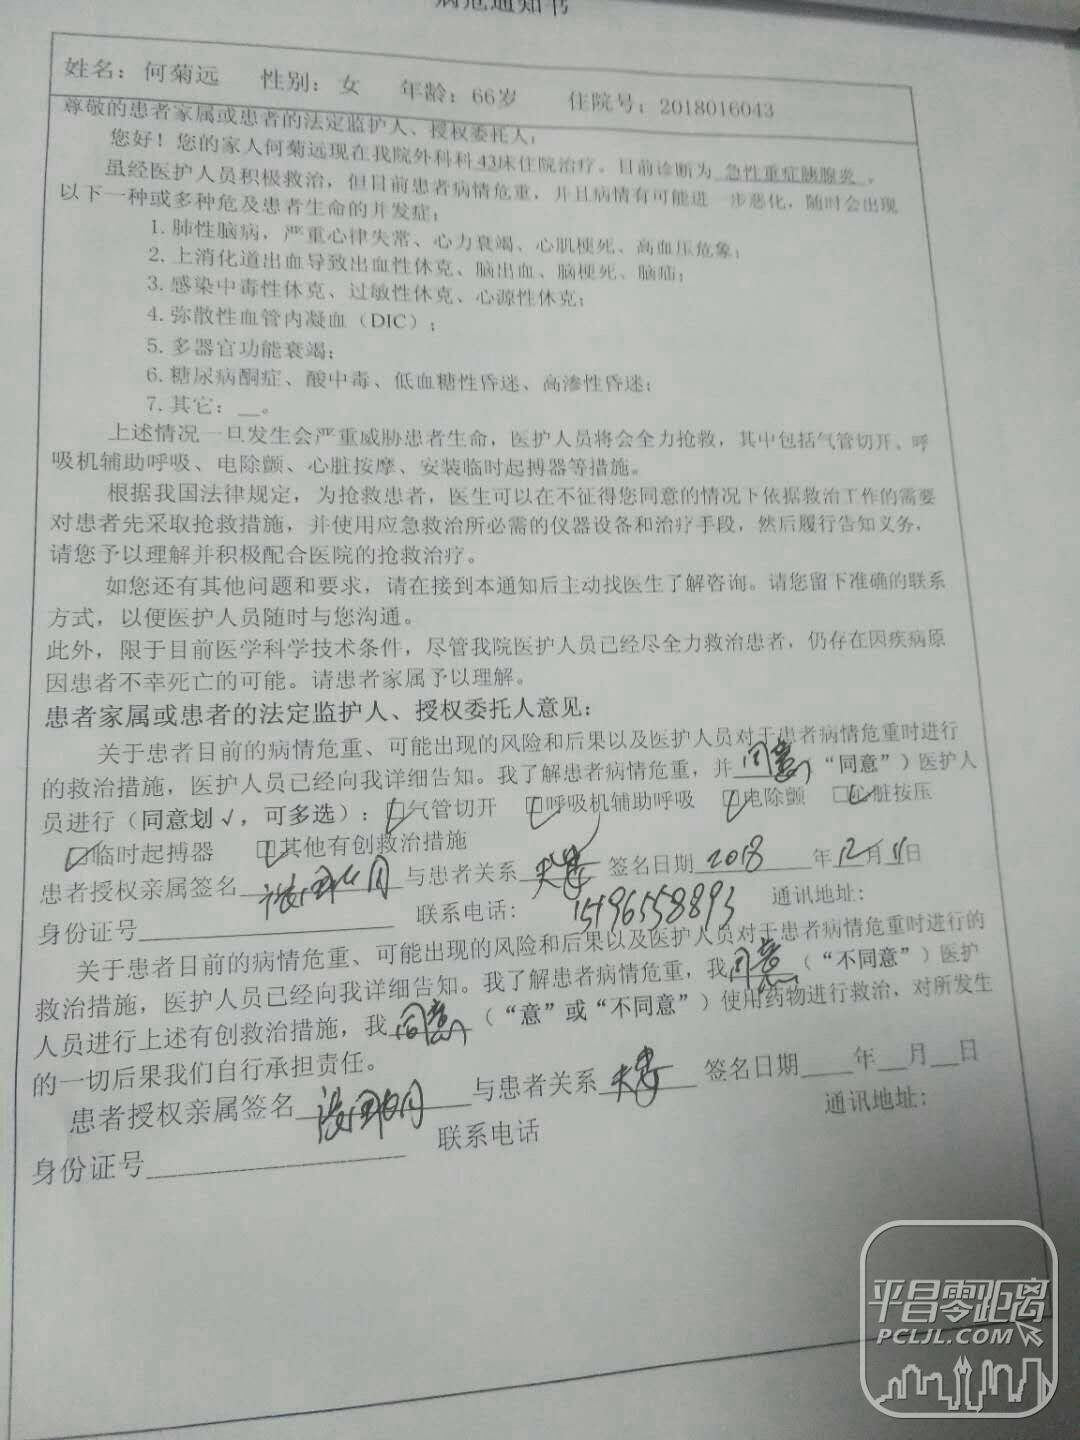 病危通知书
姓名：何菊远 性别：女 年龄：66岁 住院号：2018016043
尊敬的患者家属或患者的法定监护人、授权委托人：
您好！您的家人何菊远现在我院外科科 43床住院治疗。目前诊断为 急性重症胰腺炎 。
虽经医护人员积极救治，但目前患者病情危重，并且病情有可能进一步恶化，随时会出现
以下一种或多种危及患者生命的并发症：
1. 肺性脑病，严重心律失常、心力衰竭、心肌梗死、高血压危象；
2. 上消化道出血导致出血性休克、脑出血、脑梗死、脑疝；
3. 感染中毒性休克、过敏性休克、心源性休克；
4. 弥散性血管内凝血（DIC）；
5. 多器官功能衰竭；
6. 糖尿病酮症、酸中毒、低血糖性昏迷、高渗性昏迷；
7. 其它：__。
上述情况一旦发生会严重威胁患者生命，医护人员将会全力抢救，其中包括气管切开、呼
吸机辅助呼吸、电除颤、心脏按摩、安装临时起搏器等措施。
根据我国法律规定，为抢救患者，医生可以在不征得您同意的情况下依据救治工作的需要
对患者先采取抢救措施，并使用应急救治所必需的仪器设备和治疗手段，然后履行告知义务，
请您予以理解并积极配合医院的抢救治疗。
如您还有其他问题和要求，请在接到本通知后主动找医生了解咨询。请您留下准确的联系
方式，以便医护人员随时与您沟通。
此外，限于目前医学科学技术条件，尽管我院医护人员已经尽全力救治患者，仍存在因疾病原
因患者不幸死亡的可能。请患者家属予以理解。
患者家属或患者的法定监护人、授权委托人意见：
关于患者目前的病情危重、可能出现的风险和后果以及医护人员对于患者病情危重时进行
的救治措施，医护人员已经向我详细告知。我了解患者病情危重，并 同意 “同意”）医护人
员进行（同意划√，可多选）：☑气管切开 ☑呼吸机辅助呼吸 ☑电除颤 ☑心脏按压
☑临时起搏器 ☑其他有创救治措施
患者授权亲属签名 与患者关系 夫妻 签名日期 2018 年 12 月 11 日
身份证号 联系电话: 15196558893 通讯地址:
关于患者目前的病情危重、可能出现的风险和后果以及医护人员对于患者病情危重时进行的
救治措施，医护人员已经向我详细告知。我了解患者病情危重，我 同意 （“不同意”）医护
人员进行上述有创救治措施，我 同意 （“意”或“不同意”）使用药物进行救治，对所发生
的一切后果我们自行承担责任。
患者授权亲属签名 与患者关系 夫妻 签名日期____年__月__日
身份证号 联系电话 通讯地址:
平昌零距离
PCLJL.COM